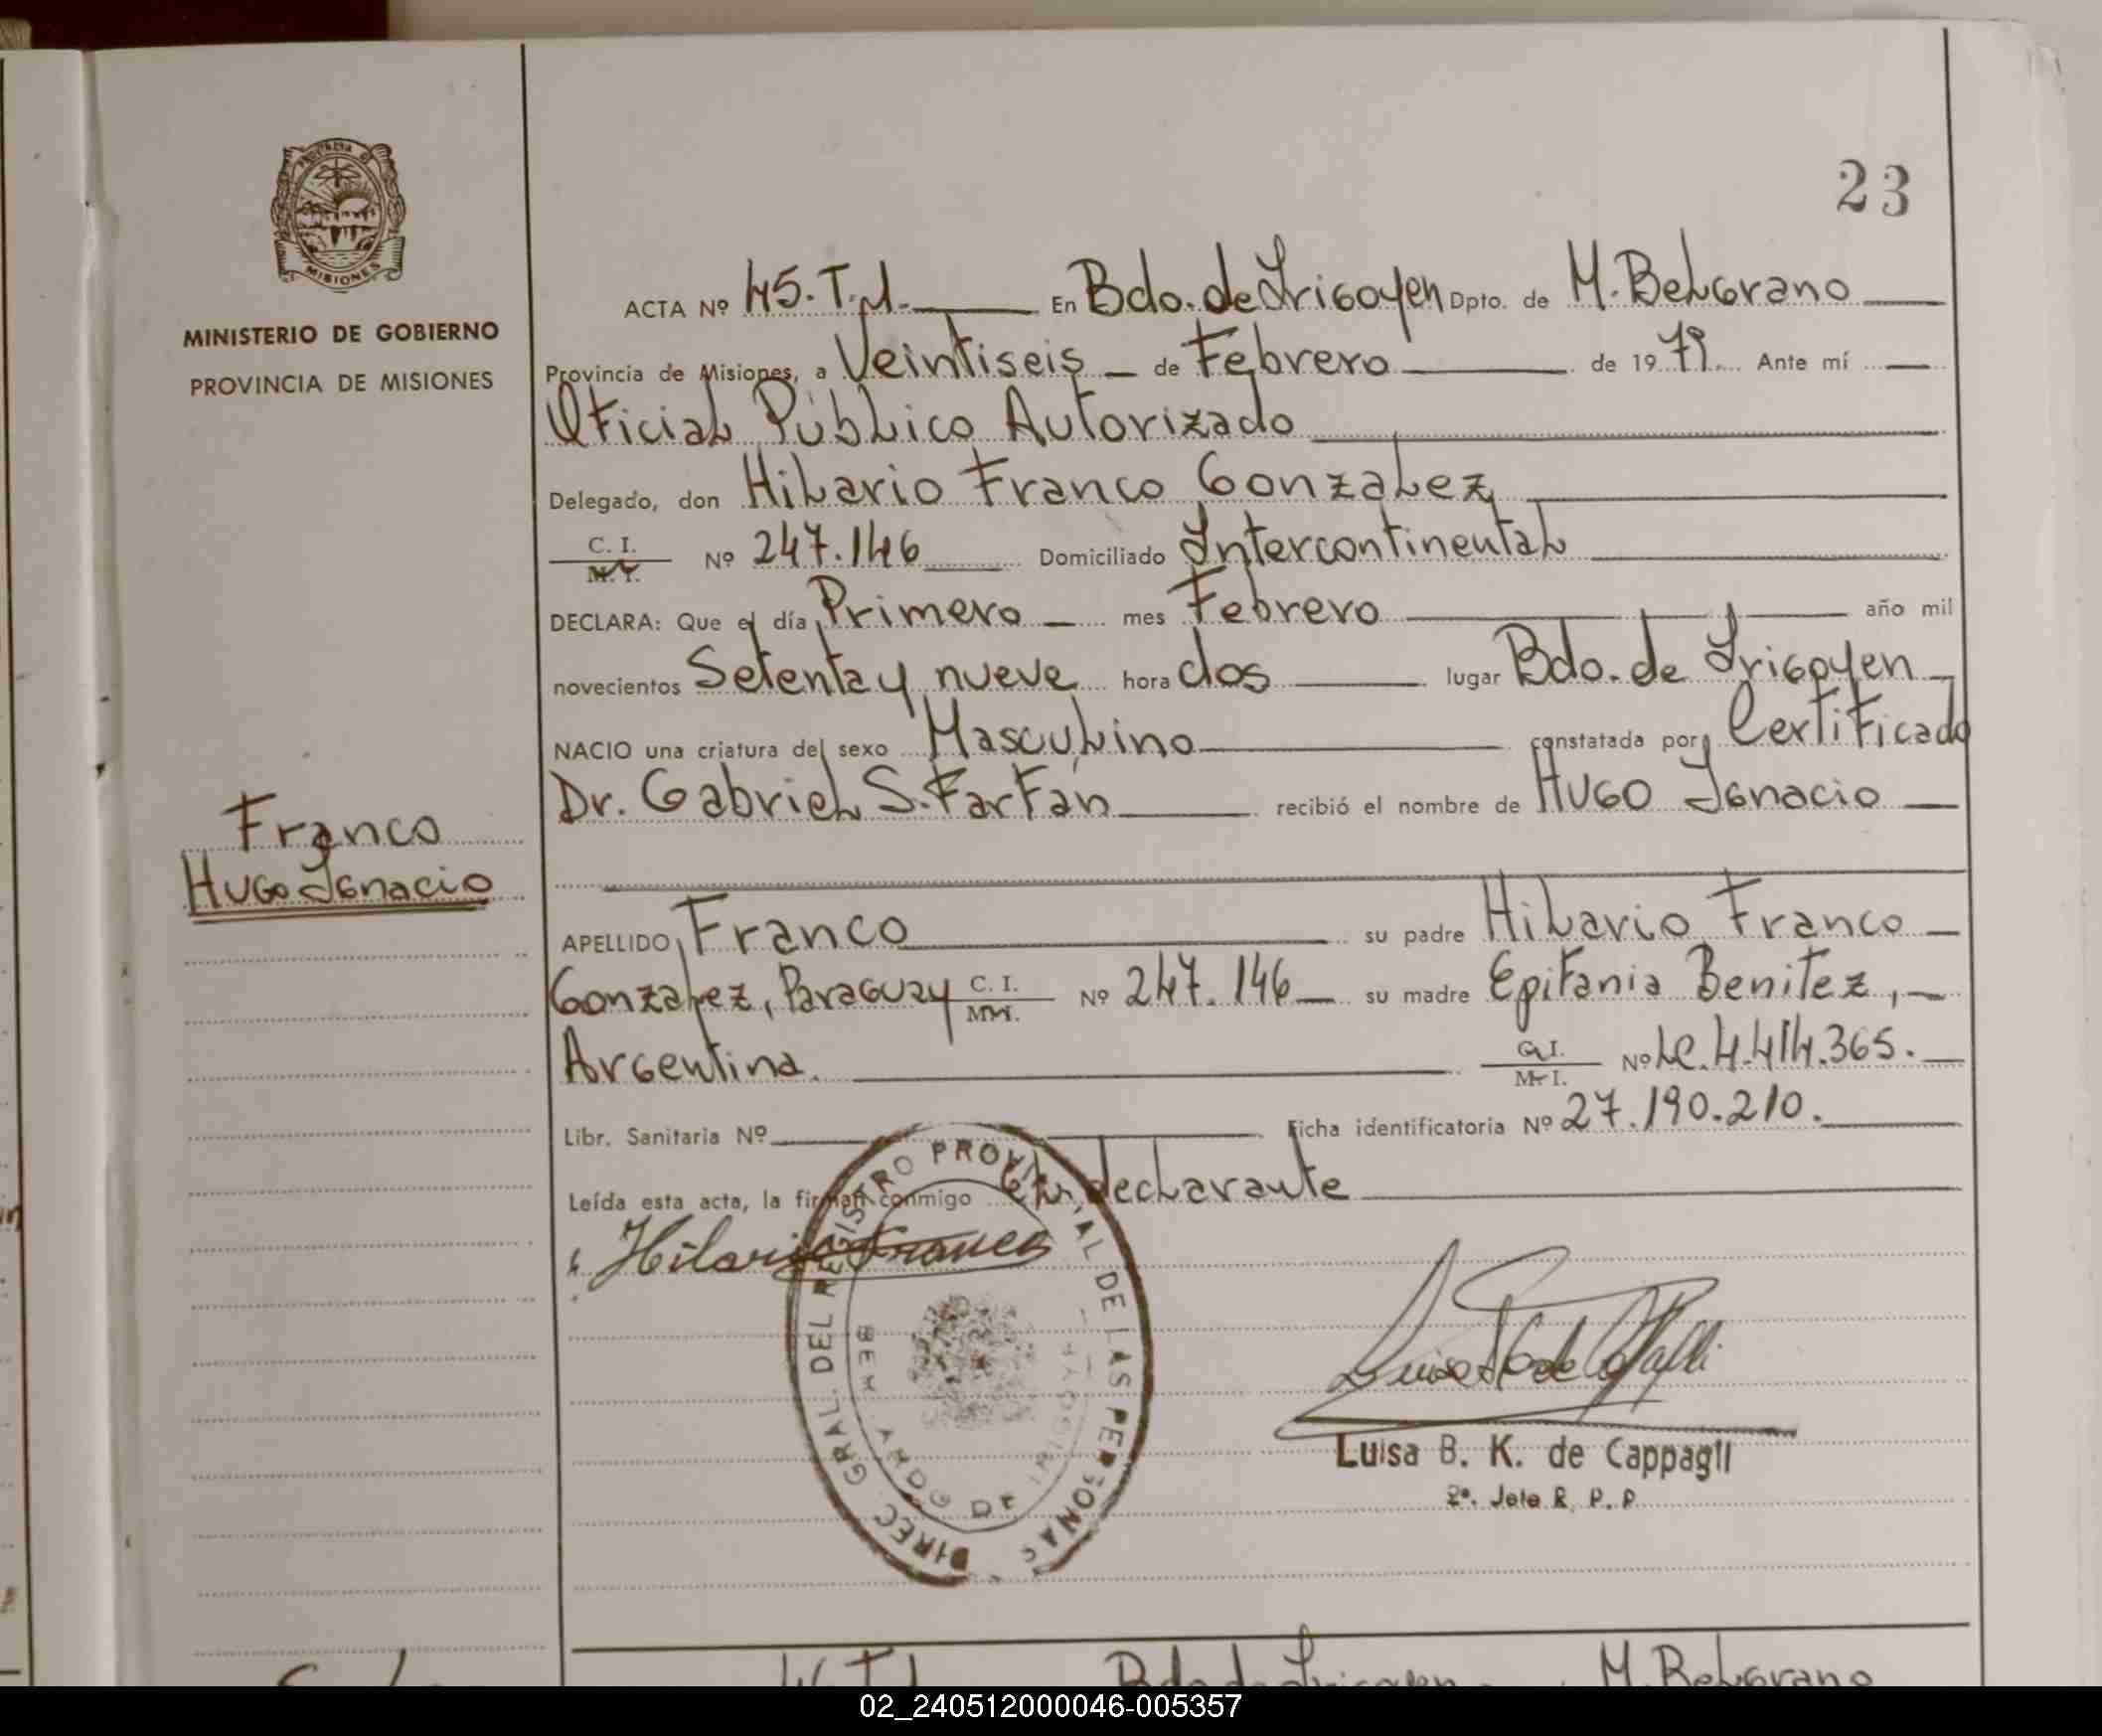 PROVINCIA DE
MISIONES
MINISTERIO DE GOBIERNO
PROVINCIA DE MISIONES
Franco
Hugo Ignacio
23
ACTA Nº 45. T.I. En Bdo. de Irigoyen Dpto. de M. Belgrano
Provincia de Misiones, a Veintiseis de Febrero de 1979. Ante mí
Oficial Público Autorizado
Delegado, don Hilario Franco Gonzalez
C. I. M. I. Nº 247.146 Domiciliado Intercontinental
DECLARA: Que el día Primero mes Febrero año mil
novecientos Setenta y nueve hora dos lugar Bdo. de Irigoyen
NACIO una criatura del sexo Masculino constatada por Certificado
Dr. Gabriel S. Farfán recibió el nombre de Hugo Ignacio
APELLIDO Franco su padre Hilario Franco
Gonzalez, Paraguay C. I. M. I. Nº 247.146 su madre Epifania Benitez,
Argentina. C. I. M. I. Nº LC. 4.414.365.
Libr. Sanitaria Nº Ficha identificatoria Nº 27.190.210.
Leída esta acta, la firman conmigo El declarante
Hilario Franco
DIREC. GRAL. DEL REGISTRO PROVINCIAL DE LAS PERSONAS
Luisa B. K. de Cappagli
2º. Jefe R. P. P.
Bdo. de Irigoyen M. Belgrano
02_240512000046-005357